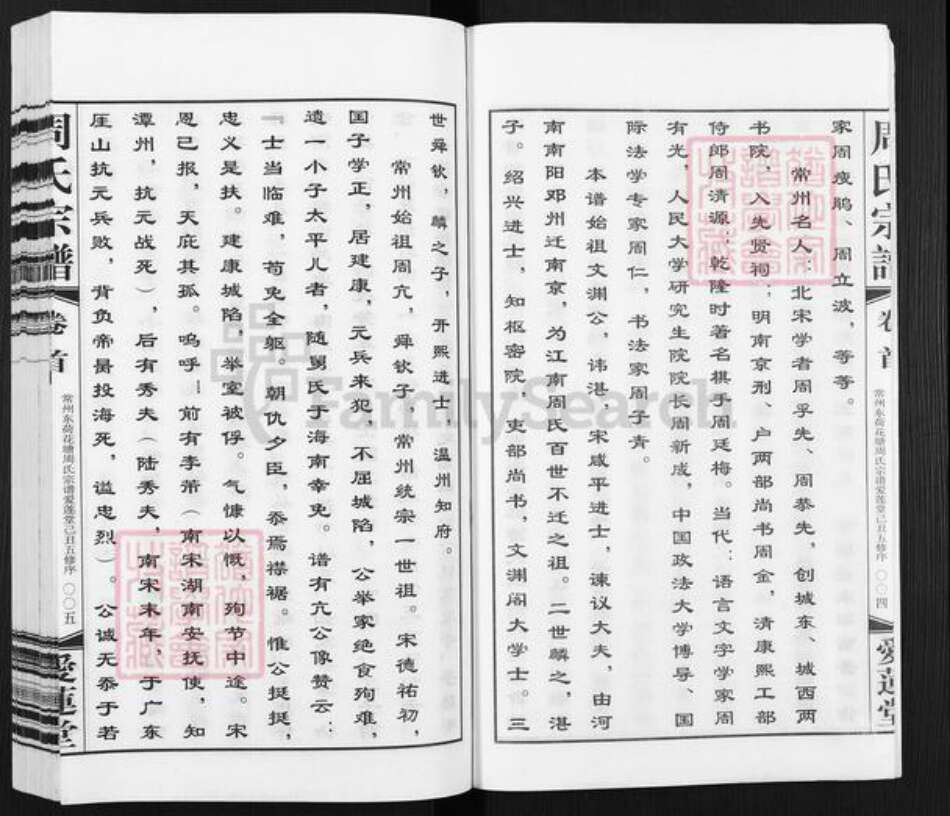 家周瘦鹃、周立波，等等。
常州名人：北宋学者周孚先、周恭先，创城东、城西两
书院，入先贤祠；明南京刑、户两部尚书周金，清康熙工部
侍郎周清源；乾隆时著名棋手周廷梅。当代：语言文字学家周
有光，人民大学研究生院院长周新成，中国政法大学博导、国
际法学专家周仁，书法家周子青。
本谱始祖文渊公，讳湛，宋咸平进士，谏议大夫，由河
南南阳邓州迁南京，为江南周氏百世不迁之祖。二世麟之，湛
子。绍兴进士，知枢密院，吏部尚书，文渊阁大学士。三
周氏宗谱
卷首
常州东荷花塘周氏宗谱爱莲堂己丑五修序
〇〇四
愛蓮堂
世舜钦，麟之子，开熙进士，温州知府。
常州始祖周亢，舜钦子，常州统宗一世祖。宋德祐初，
国子学正，居建康，元兵来犯，不屈城陷，公举家绝食殉难，
遗一小子太平儿者，随舅氏于海南幸免。谱有亢公像赞云：
『士当临难，苟免全躯。朝仇夕臣，忝焉襟裾。惟公挺挺，
忠义是扶。建康城陷，举室被俘。气慷以慨，殉节中途。宋
恩已报，天庇其孤。呜呼！前有李芾（南宋湖南安抚使，知
潭州，抗元战死），后有秀夫（陆秀夫，南宋末年，于广东
厓山抗元兵败，背负帝昺投海死，谥忠烈）。公诚无忝于若
周氏宗譜
卷首
常州东荷花塘周氏宗谱爱莲堂己丑五修序
〇〇五
愛蓮堂
FamilySearch